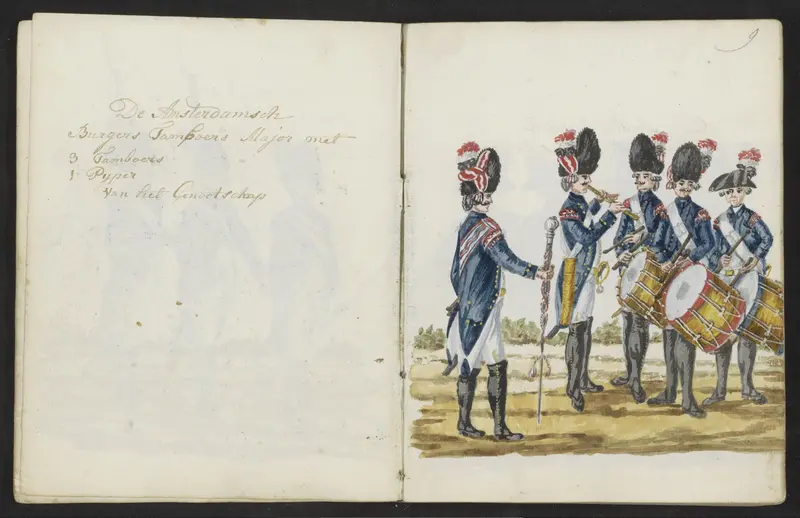 De Amsterdamsch
Burgers Tamboers Major met
3 Tamboers
1 Pyper
Van het Genootschap
9